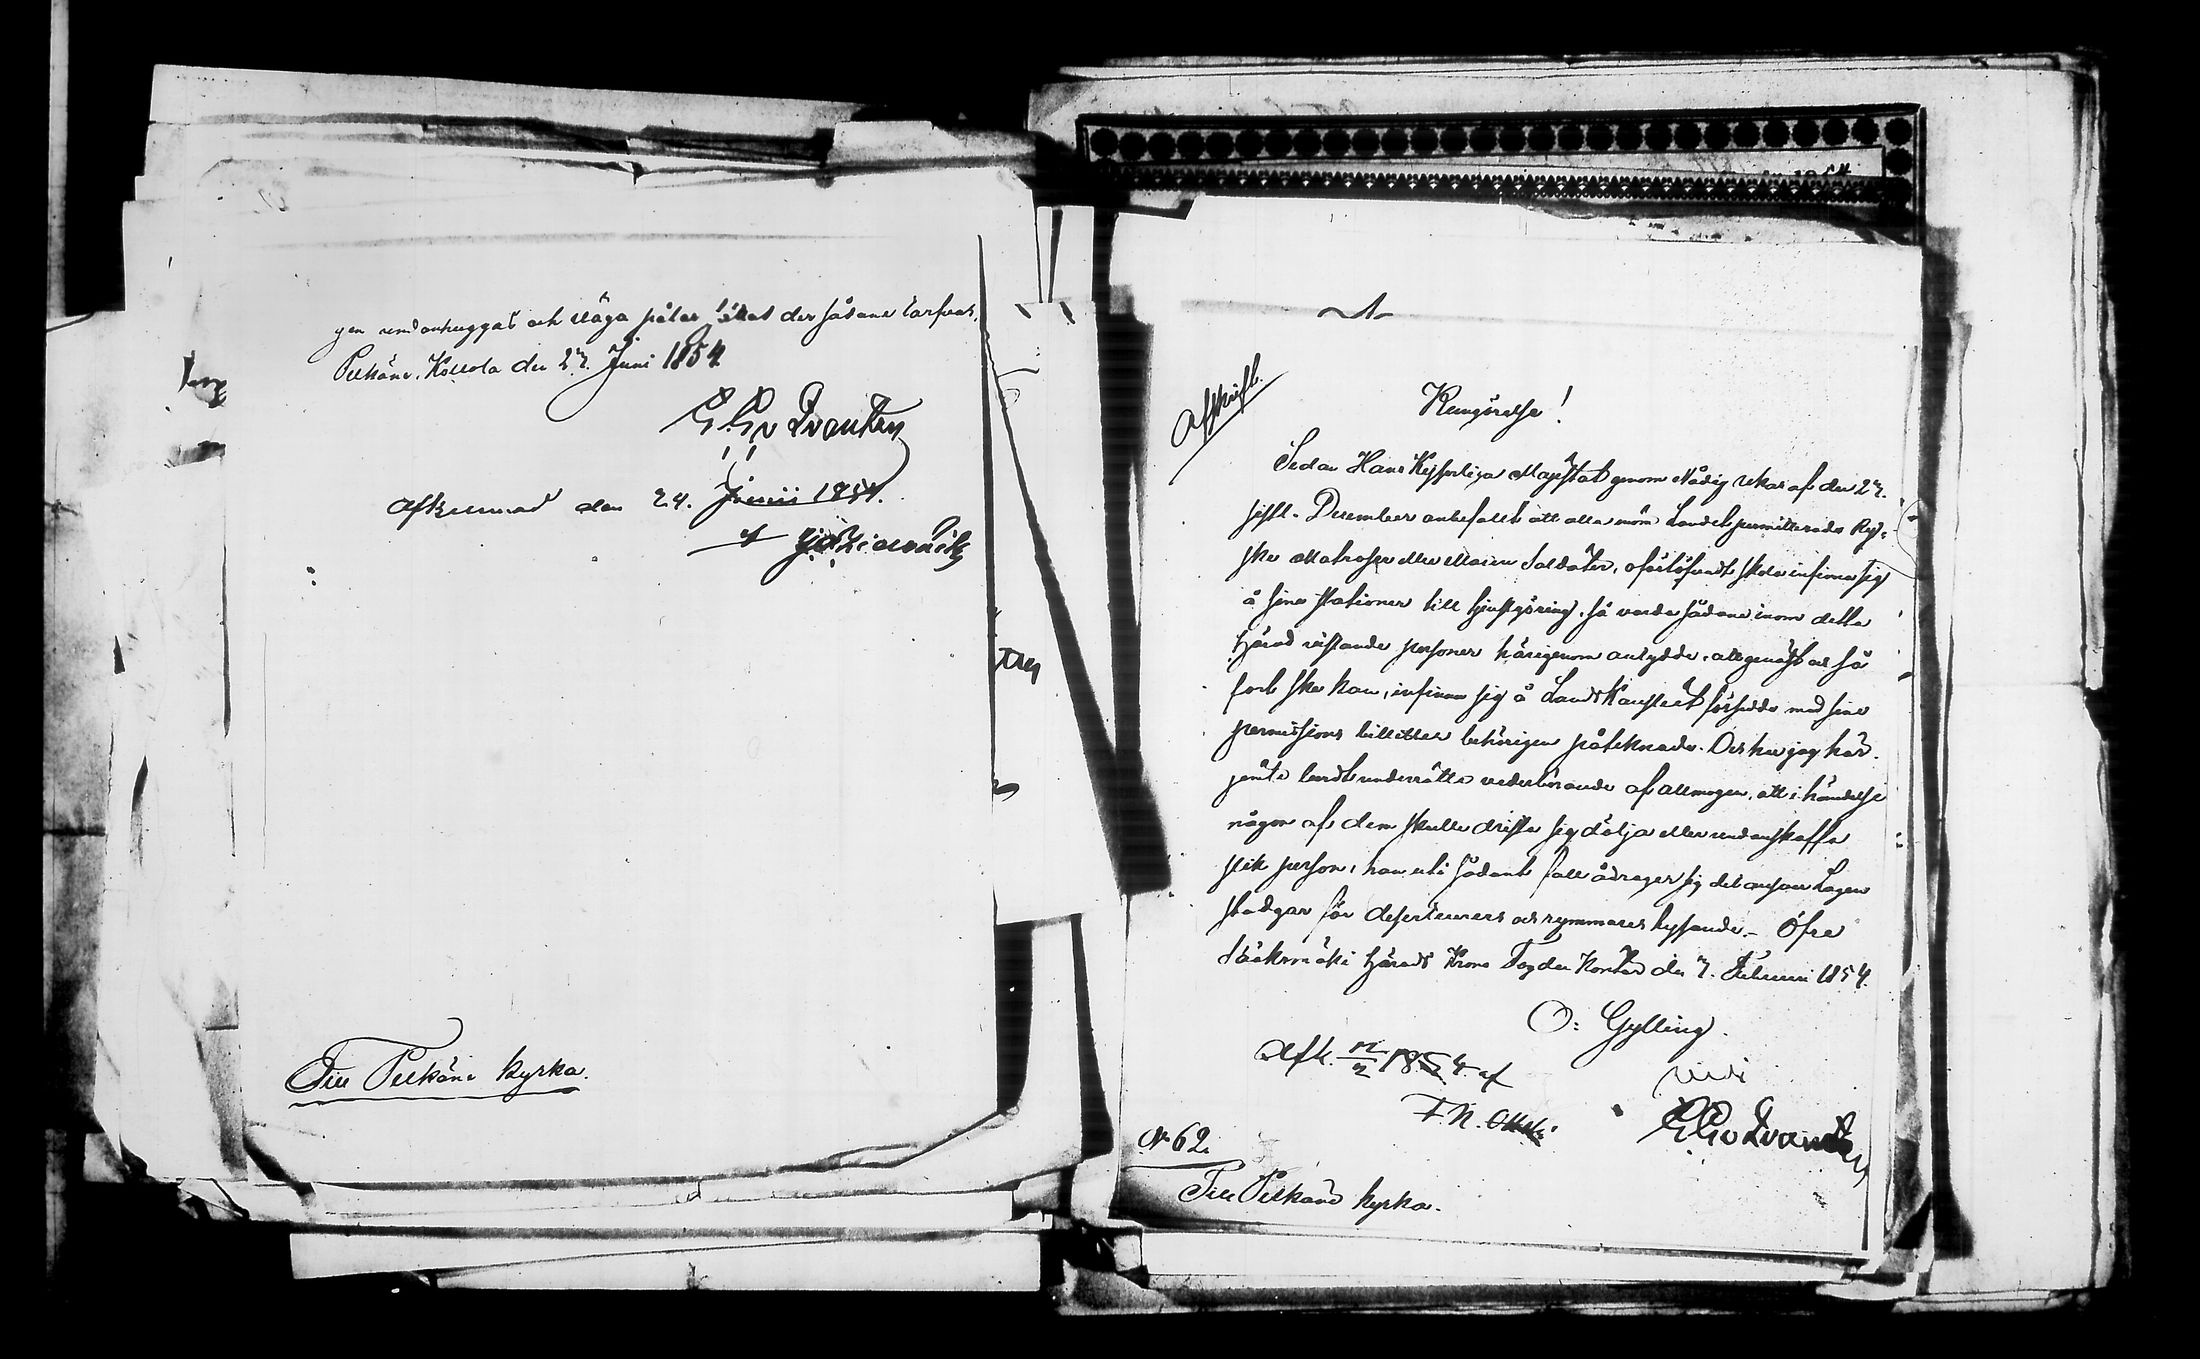 gen undanhuggas och wäga pålar sättas der sådane tarfvas.
Pelkäne, Kollola den 27. Juni 1854
G. G. v Qvanten
Afkunnad den 24. Junii 1854.
Till Pelkäne kyrka.
Afskrift.
Kungörelse!
Sedan Hans Kejserliga Majestät genom Nådig ukas af den 27.
sistl. December anbefallt att alla inom Landet permitterade Rys-
ska Matroser eller Marin Soldater, ofördröjeligen skola infinna sig
å sina stationer till tjenstgöring, så varda sådane inom detta
härad vistande personer härigenom antydde, att genast och så
fort ske kan, infinna sig å Lands Kansliet försedde med sina
permissions billetter behörigen påteknade. Och har jag här-
jämte bordt underrätta vederbörande af allmogen, att i händelse
någon af dem skulle drista sig dölja eller undanskaffa
slik person, han uti sådant fall ådrager sig det ansvar Lagen
stadgar för deserteurers och rymmares hysande. – Öfre
Sääksmäki härads Krono Fogde Kontor den 7. Februari 1854.
O: Gylling.
Afk. 12/2 1854 af
F. N.
vidi
G. G. v Qvanten
N 62.
Till Pelkäne kyrka.